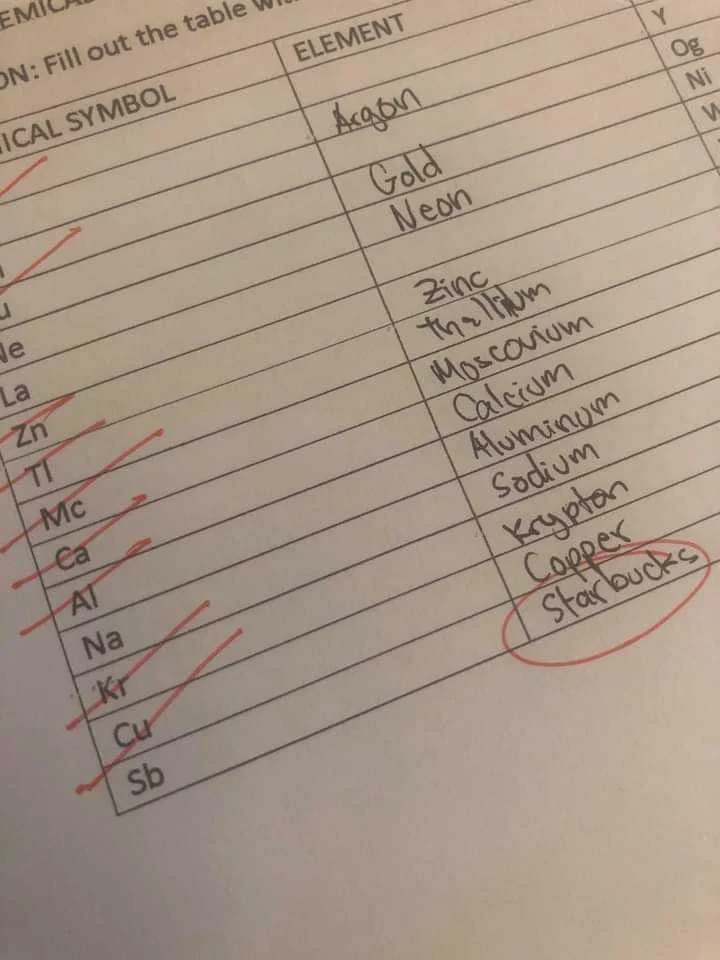 ON: Fill out the table
ICAL SYMBOL ELEMENT
Y
Argon Og
Ni
Gold
Neon
Ne
La
Zn Zinc
Tl thallium
Mc Moscovium
Ca Calcium
Al Aluminum
Na Sodium
Kr Krypton
Cu Copper
Sb Starbucks